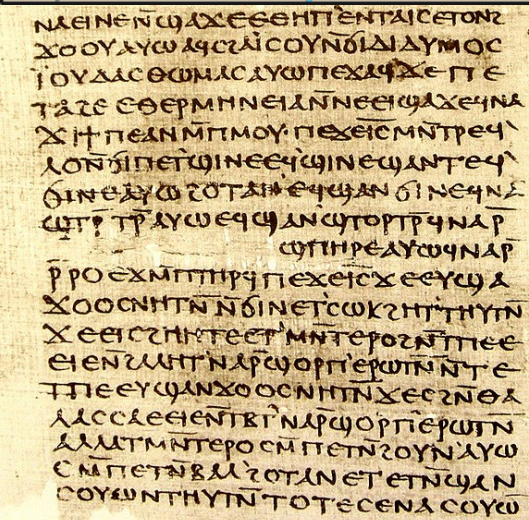 ⲛⲁⲉⲓⲛⲉⲛ̄ϣⲁϫⲉⲉⲑⲏⲡ̀ⲉⲛⲧⲁⲓ̅ⲥ̅ⲉⲧⲟⲛϩ
ϫⲟⲟⲩⲁⲩⲱⲁϥⲥϩⲁⲓ̈ⲥⲟⲩⲛ̄ϭⲓⲇⲓⲇⲩⲙⲟⲥ
ⲓ̈ⲟⲩⲇⲁⲥⲑⲱⲙⲁⲥⲁⲩⲱⲡⲉϫⲁϥϫⲉⲡⲉ
ⲧⲁϩⲉⲉⲑⲉⲣⲙⲏⲛⲉⲓⲁⲛ̄ⲛⲉⲉⲓϣⲁϫⲉϥⲛⲁ
ϫⲓϯⲡⲉⲁⲛⲙ̄ⲡⲙⲟⲩ·ⲡⲉϫⲉⲓ̅ⲥ̅ⲙⲛ̄ⲧⲣⲉϥ`
ⲗⲟⲛ̄ϭⲓⲡⲉⲧ`ϣⲓⲛⲉⲉϥϣⲓⲛⲉϣⲁⲛⲧⲉϥ`
ϭⲓⲛⲉⲁⲩⲱϩⲟⲧⲁⲛⲉϥϣⲁⲛϭⲓⲛⲉϥⲛⲁ
ϣⲧⲣ̄ⲧⲣ̄ⲁⲩⲱⲉϥϣⲁⲛϣⲧⲟⲣⲧⲣ̄ϥⲛⲁⲣ̄
ϣⲡⲏⲣⲉⲁⲩⲱϥⲛⲁⲣ̄
ⲣ̄ⲣⲟⲉϫⲙ̄ⲡⲧⲏⲣϥ̄ⲡⲉϫⲉⲓ̅ⲥ̅ϫⲉⲉⲩϣⲁ
ϫⲟⲟⲥⲛⲏⲧⲛ̄ⲛ̄ϭⲓⲛⲉⲧ`ⲥⲱⲕϩⲏⲧ`ⲧⲏⲩⲧⲛ̄
ϫⲉⲉⲓⲥϩⲏⲏⲧⲉⲉⲧ`ⲙⲛ̄ⲧⲉⲣⲟϩⲛ̄ⲧⲡⲉⲉ
ⲉⲓⲉⲛ̄ϩⲁⲗⲏⲧ`ⲛⲁⲣ̄ϣⲟⲣⲡ`ⲉⲣⲱⲧⲛ̄ⲛ̄ⲧⲉ
ⲧⲡⲉⲉⲩϣⲁⲛϫⲟⲟⲥⲛⲏⲧⲛ̄ϫⲉⲥϩⲛ̄ⲑⲁ
ⲗⲁⲥⲥⲁⲉⲉⲓⲉⲛ̄ⲧⲃⲧ`ⲛⲁⲣ̄ϣⲟⲣⲡ`ⲉⲣⲱⲧⲛ̄
ⲁⲗⲗⲁⲧⲙⲛ̄ⲧⲉⲣⲟⲥⲙ̄ⲡⲉⲧⲛ̄ϩⲟⲩⲛⲁⲩⲱ
ⲥⲙ̄ⲡⲉⲧⲛ̄ⲃⲁⲗϩⲟⲧⲁⲛⲉⲧⲉⲧⲛ̄ϣⲁⲛ
ⲥⲟⲩⲱⲛⲧⲏⲩⲧⲛ̄ⲧⲟⲧⲉⲥⲉⲛⲁⲥⲟⲩⲱ